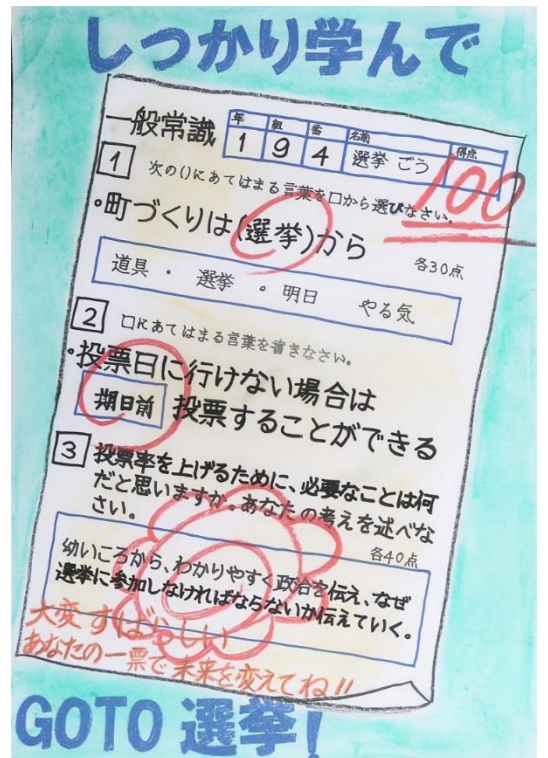 しっかり学んで
一般常識
年 組 番 名前 得点
1 9 4 選挙 ごう 100
1 次の()にあてはまる言葉を口から選びなさい。
・町づくりは(選挙)から
各30点
道具 ・ 選挙 ・ 明日 やる気
2 口にあてはまる言葉を書きなさい。
・投票日に行けない場合は
期日前 投票することができる
3 投票率を上げるために、必要なことは何
だと思いますか。あなたの考えを述べな
さい。
各40点
幼いころから、わかりやすく政治を伝え、なぜ
選挙に参加しなければならないか伝えていく。
大変すばらしい
あなたの一票で未来を変えてね!!
GOTO 選挙!